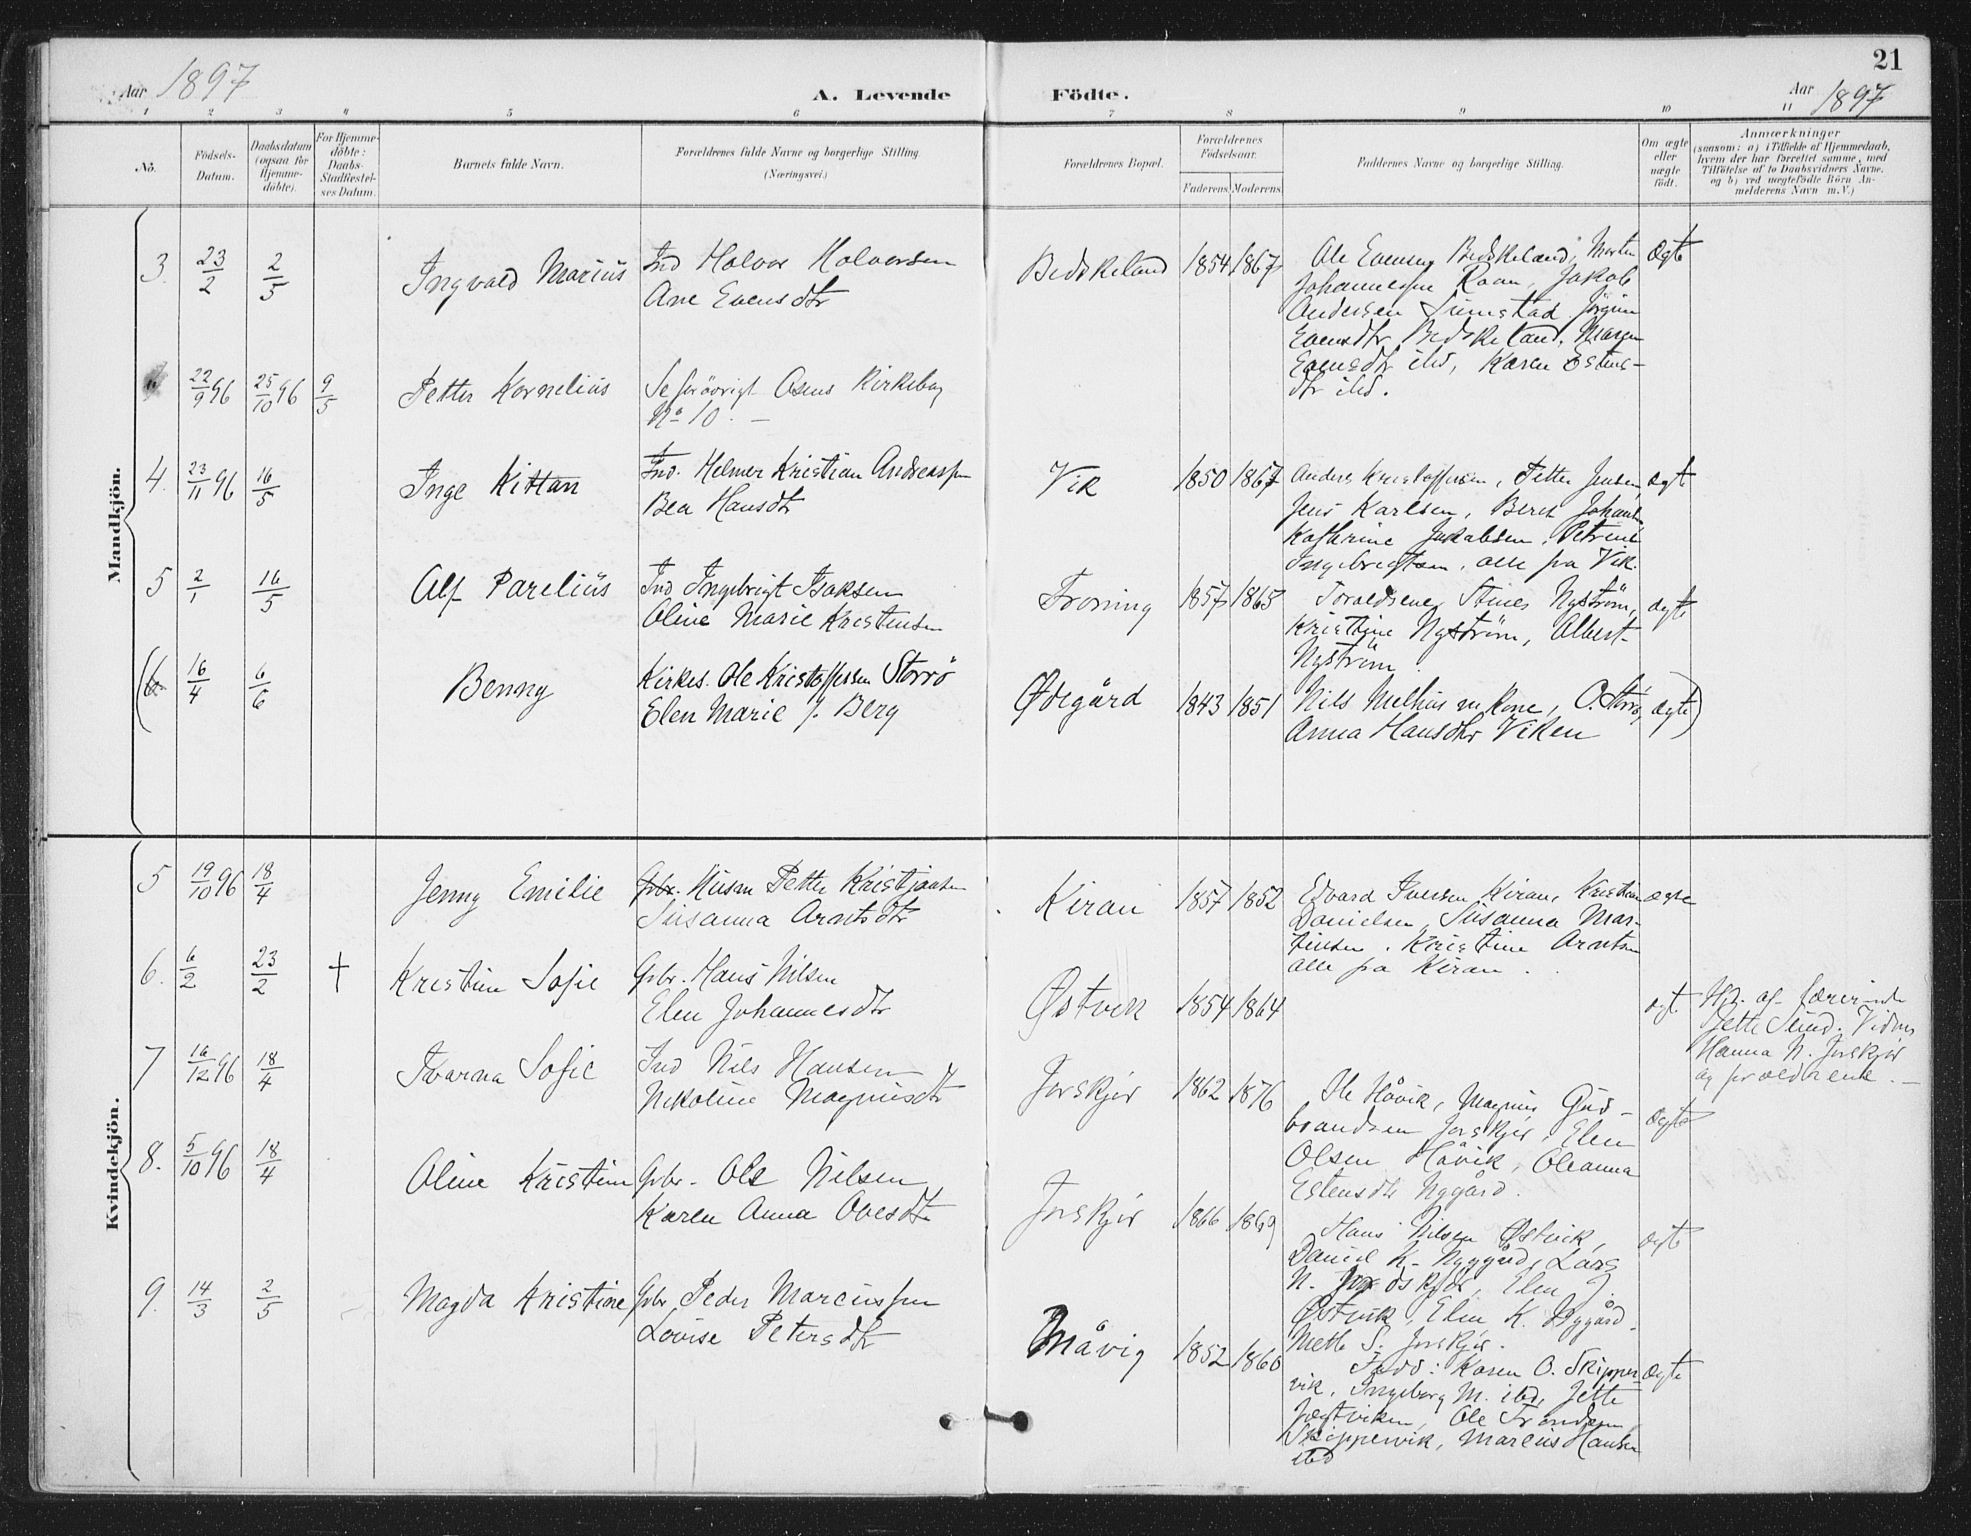 21
Aar 1897 A. Levende Födte. Aar 1897
1 2 3 4 5 6 7 8 9 10 11
No.
Födsels-
Datum.
Daabsdatum
(ogsaa for
Hjemme-
döbte).
For Hjemme-
döbte:
Daabs-
Stadfæstel-
ses Datum.
Barnets fulde Navn.
Forældrenes fulde Navne og borgerlige Stilling
(Næringsvei.)
Forældrenes Bopæl.
Forældrenes
Födselsaar.
Faderens. Moderens.
Faddernes Navne og borgerlige Stilling.
Om ægte
eller
uægte
födt.
Anmærkninger
(saasom: a) i Tilfælde af Hjemmedaab,
hvem der har forrettet samme, med
Tilföielse af to Daabsvidners Navne.
og b) ved uægtefödte Börn An-
melderens Navn m. V.)
Mandkjön.
3. 23/2 2/5 Ingvald Marius
Ind Halvor Halvorsen
Ane Evensdtr
Bedskeland 1854 1867
Ole Evensen Bedskeland, Morten
Johannessen Raan, Jakob
Andersen Sumstad, Jörgine
Evensdtr Bedskeland, Maren
Evensdtr ibd, Karen Estens-
dtr ibd.
Ægte
22/9 96 25/10 96 9/5 Petter Kornelius
Se forövrigt Osens Kirkebog
No 10. —
4. 23/11 96 16/5 Inge Kittan
Ind. Helmer Kristian Andreassen
Bea Hansdtr
Vik 1850 1867
Anders Kristoffersen, Petter Jensen,
Jens Karlsen, Beret Johans
Kathrine Jakobsen, Petrine
Ingebrigtsen, alle fra Vik.
ægt
5 2/1 16/5 Alf Parelius
Ind Ingebrigt Isaksen
Oline Marie Kristensen
Froning 1857 1865
Foreldrene, Stines Nyström,
Kristine Nyström, Albert
Nyström.
ægte
(6 16/4 6/6 Benny
Kirkes. Ole Kristoffersen Storrö
Elen Marie f. Berg
Ødegård 1843 1851
Nils Melhus m kone, O. Storrö,
Anna Hansdtr Viken
ægte)
Kvindekjön.
5 19/10 96 18/4 Jenny Emilie
Gbr. Husm Petter Kristjansen
Susanna Arntsdtr
Kiran 1857 1852
Edvard Iversen Kiran, Kristian
Danielsen, Susanna Mar-
tinsen, Kristine Arntsen
alle fra Kiran.
ægte
6. 6/2 23/2 † Kristine Sofie
Gbr. Hans Nilsen
Elen Johannesdtr
Østvik 1854 1864
ægt
Hd. af lærerinde
Jette Sund. Vidner
Hanna N. Jorskjör
og forældrene. —
7 16/12 96 18/4 Ivarna Sofie
Ind Nils Hansen
Nikoline Magnusdtr
Jorskjör 1862 1876
Ole Håvik, Magnus Gud-
brandsen Jorskjör, Elen
Olsen Håvik, Oleanna
Estensdtr Nygård.
ægte
8. 5/10 96 18/4 Oline Kristine
Gbr. Ole Nilsen
Karen Anna Ovesdtr
Jorskjör 1866 1869
Hans Nilsen Østvik,
Daniel K. Nygård, Lars
N. Jorskjör, Elen J.
Østvik, Elen K. Nygård
Mette S. Jorskjör.
ægt
9. 14/3 2/5 Magda Kristine
Gbr. Peder Marcussen
Lovise Petersdtr
Måvig 1852 1860
Fadd: Karen O. Skipper-
vik, Ingeborg M. ibd, Jette
Jægtviken, Ole Trondsen
Skippervik, Marcus Hansen
ibd
Ægte